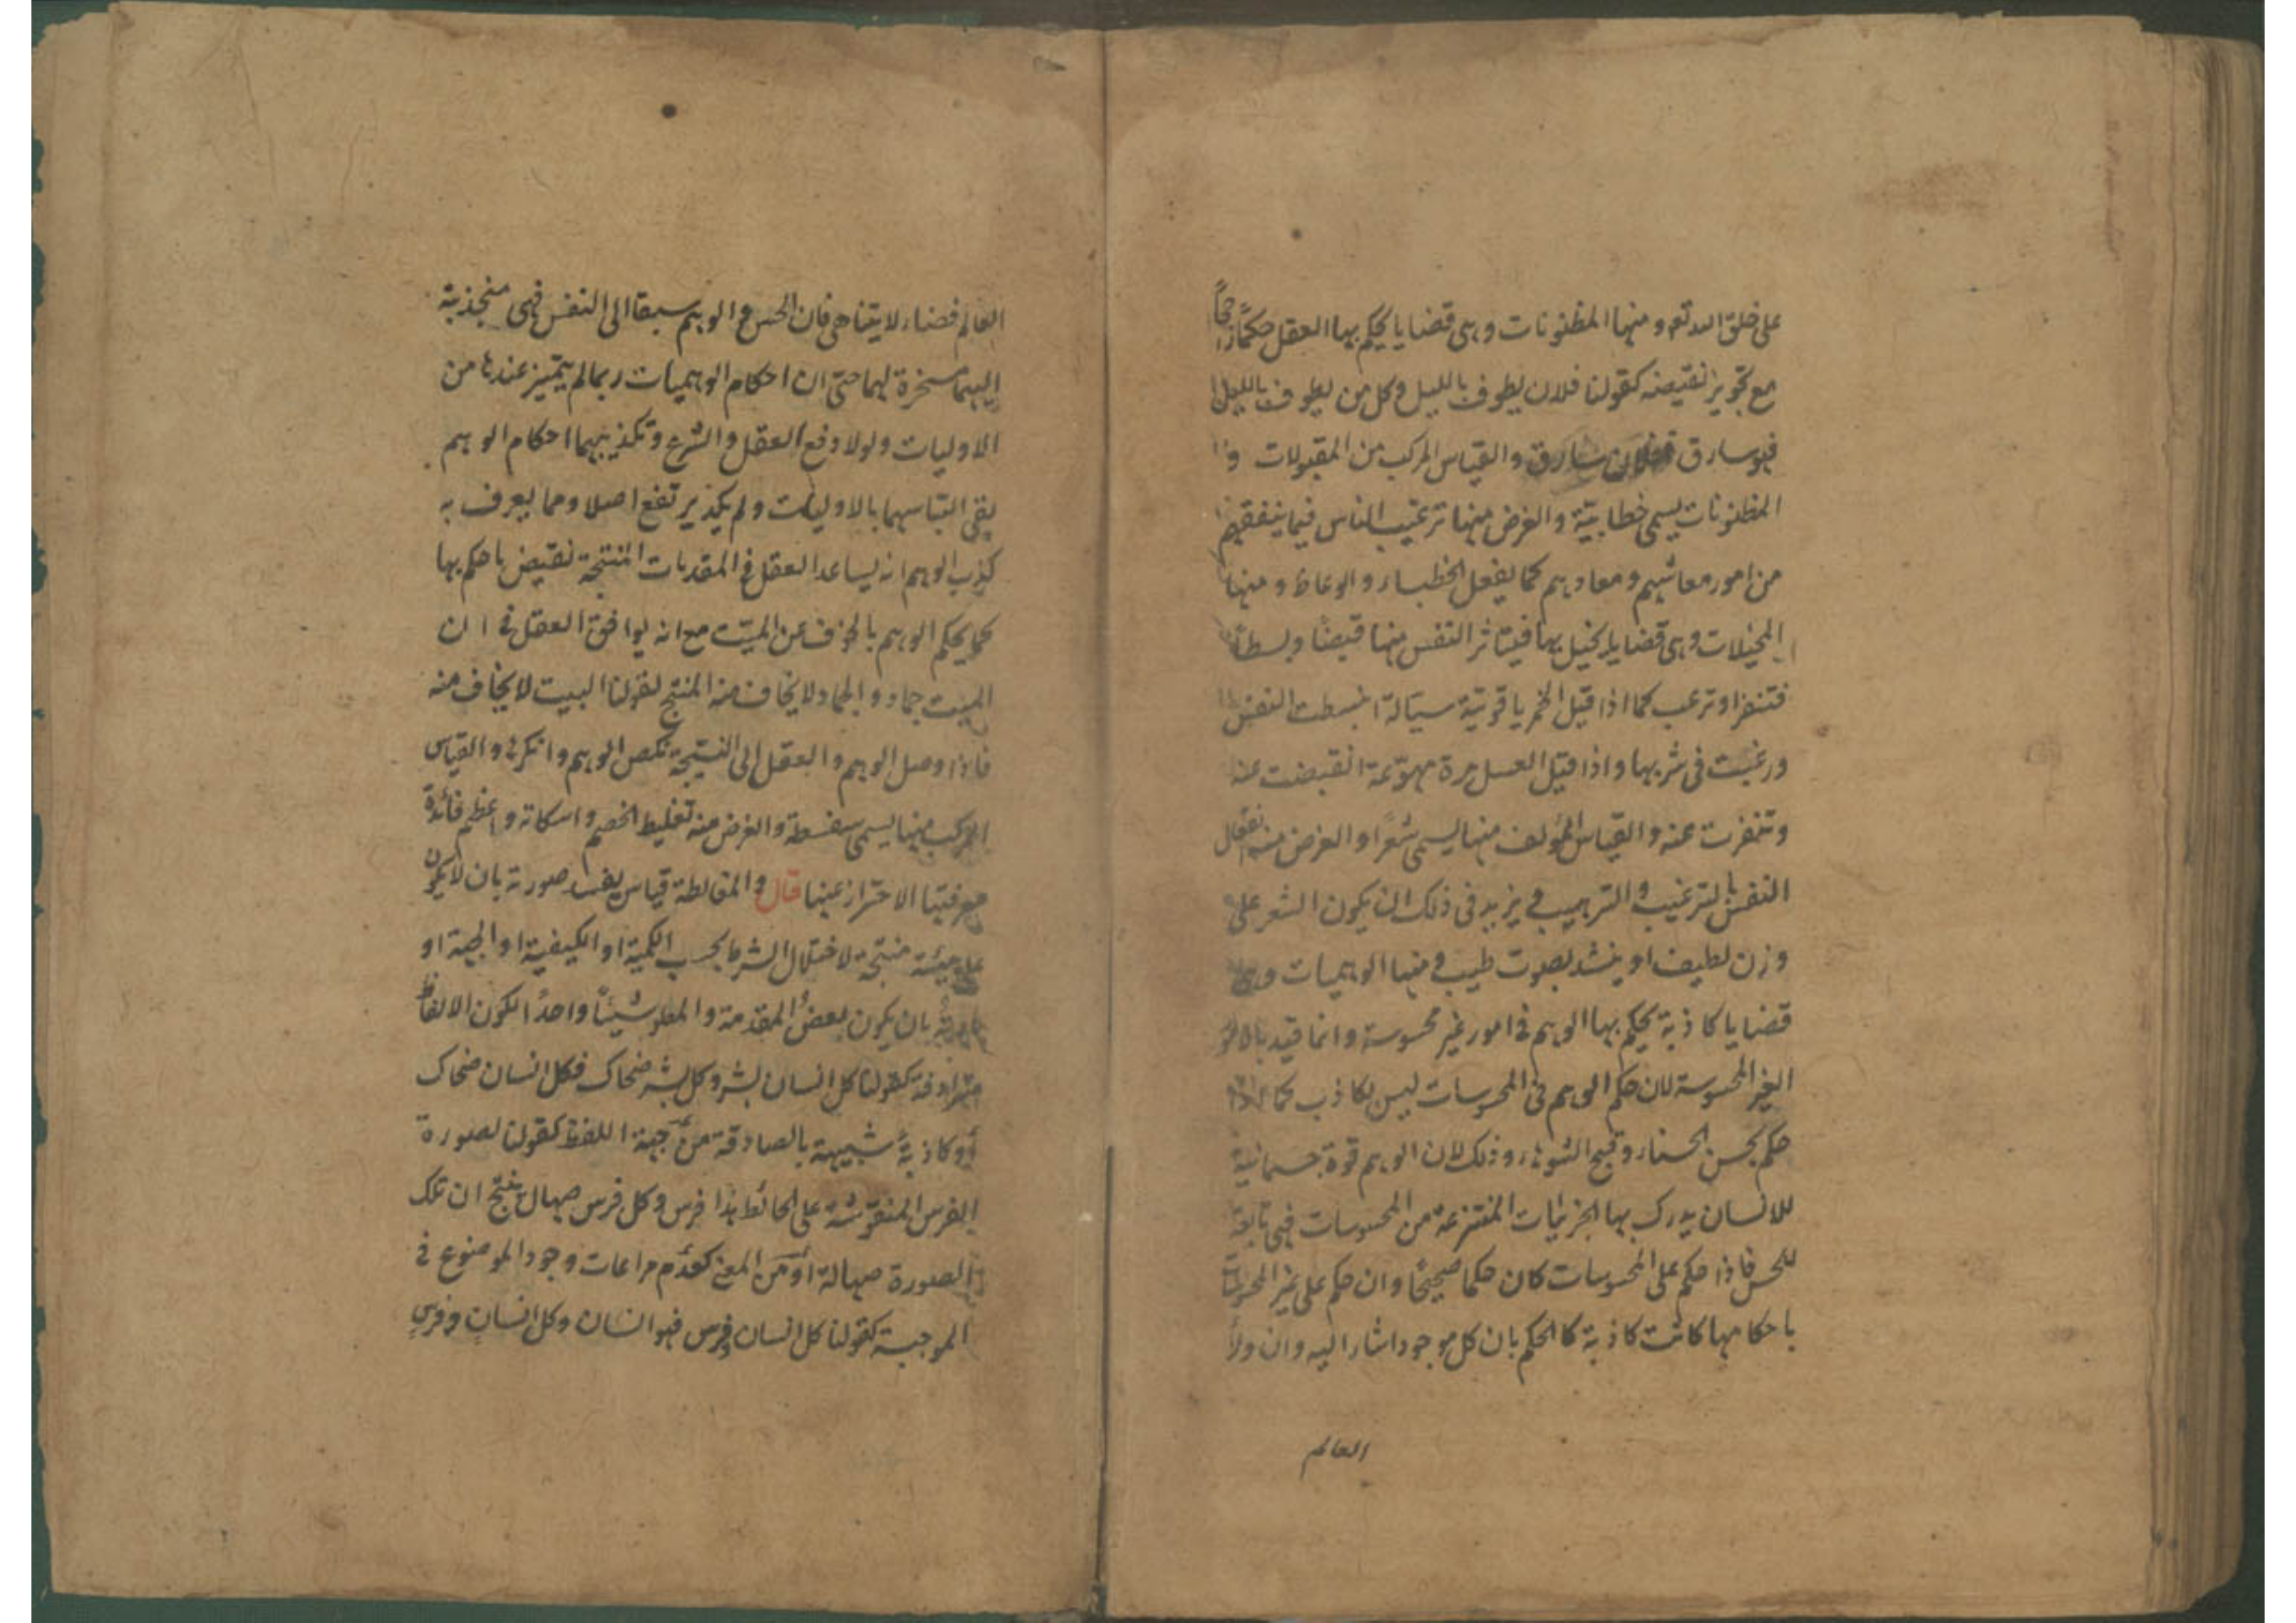 على خلق الله تع ومنها المظنونات وهى قضايا يحكم بها العقل حكمًا راجحًا
مع تجويز نقيضه كقولنا فلان يطوف بالليل وكل من يطوف بالليل
فهو سارق ففلان سارق والقياس المركب من المقبولات و
المظنونات يسمى خطابيّة والغرض منها ترغيب الناس فيما ينفعهم
من امور معاشهم ومعادهم كما يفعل الخطباء والوعاظ ومنها
المخيلات وهى قضايا يخيل بها فيتاثر النفس منها قبضًا وبسطًا
فتنفر او ترغب كما اذا قيل الخمر ياقوتيّة سيّالة انبسطت النفس
ورغبت فى شربها واذا قيل العسل مرة مهوّعة انقبضت عنه
وتنفرت عنه والقياس المؤلف منها يسمى شعرًا والغرض منه انفعال
النفس بالترغيب والترهيب ويزيد فى ذلك ان يكون الشعر على
وزن لطيف او ينشد بصوت طيب ومنها الوهميات وهى
قضايا كاذبة يحكم بها الوهم فى امور غير محسوسة وانما قيد
الغير المحسوسة لان حكم الوهم فى المحسوسات ليس بكاذب كما اذا
حكم بحسن الحسناء وقبح الشوهاء وذلك لان الوهم قوة جسمانية
للانسان يدرك بها الجزئيات المنتزعة من المحسوسات فهى تابعة
للحس فاذا حكم على المحسوسات كان حكما صحيحًا وان حكم على غير المحسوسات
باحكامها كانت كاذبة كالحكم بان كل موجود اشار اليه وان وراء
العالم
العالم فضاء لا يتناهى فان الحس والوهم سبقا الى النفس فهى منجذبة
اليهما مسخرة لهما حتى ان احكام الوهميات ربما لم يتميز عندها من
الاوليات ولولا دفع العقل والشرع وتكذيبهما احكام الوهم
بقى التباسهما بالاوليات ولم يكد يرتفع اصلا ومما يعرف به
كذب الوهم انه يساعد العقل فى المقدمات المنتجة نقيض ما حكم بها
كما يحكم الوهم بالخوف عن الميّت مع انه يوافق العقل فى ان
الميت جماد والجماد لا يخاف منه المنتج لقولنا الميت لا يخاف منه
فاذا وصل الوهم والعقل الى النتيجة نكص الوهم وانكرها والقياس
المركب منها يسمى سفسطة والغرض منه تغليط الخصم واسكاته واعظم فائدة
معرفتها الاحتراز عنها قال والمغالطة قياس يفسد صورته بان لا يكون
على هيئة منتجة لاختلال الشرط بحسب الكمية او الكيفية او الجهة او
بان يكون بعض المقدمة والمطلوب شيئًا واحدًا لكون الالفاظ
مترادفة كقولنا كل انسان بشر وكل بشر ضحاك فكل انسان ضحاك
او كاذبة شبيهة بالصادقة من جهة اللفظ كقولنا لصورة
الفرس المنقوشة على الحائط هذا فرس وكل فرس صهال ينتج ان تلك
الصورة صهالة او من المعنى كعدم مراعات وجود الموضوع فى
الموجبة كقولنا كل انسان وفرس فهو انسان وكل انسان وفرس